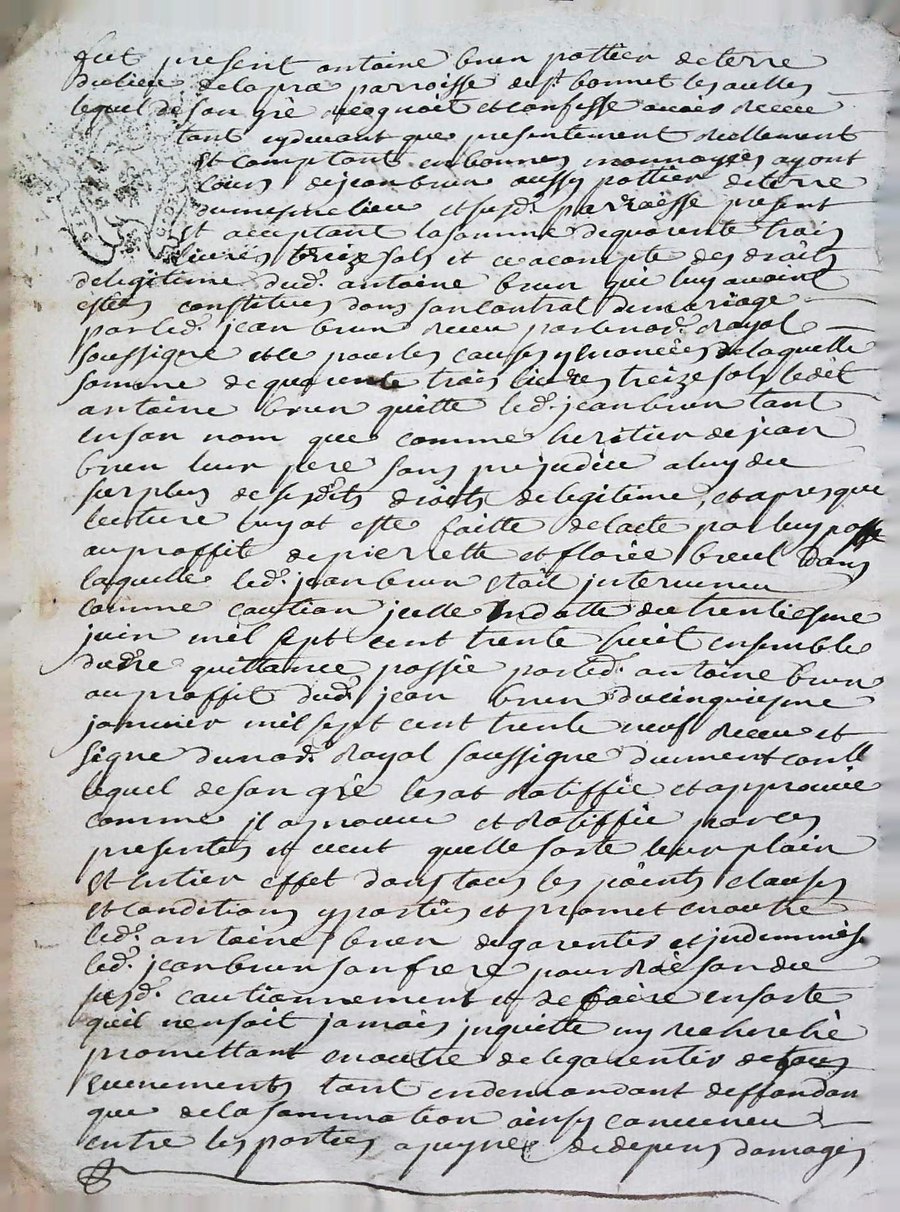 fut present antoine brun pottier de terre
du lieu de lapra parroisse de st bonnet les oulles
lequel de son gré recognoit et confesse avoir receu
tant cydevant que presentement reellement
et comptant en bonnes monnoyes ayant
cours de jean brun aussy pottier de terre
du mesme lieu et susd. parroisse present
et acceptant la somme de quarente trois
livres treize sols et ce acompte des droits
de legitime dud. antoine brun qui luy avoint
estés constitues dans son contrat de mariage
par led. jean brun receu par le no.re Royal
soussigne et ce pour les causes y enoncées de laquelle
somme de quarente trois livres treize sols ledit
antoine brun quitte led. jean brun tant
en son nom que comme heritier de jean
brun leur pere sans prejudice a luy du
surplus de sesdits droits de legitime, et apres que
lecture luy at esté faitte de lacte par luy passé
au proffit de pierrette et florie breul dans
laquelle led. jean brun etait intervenu
comme caution icelle en datte du trentiesme
juin mil sept cent trente huit ensemble
dautre quittance passée par led. antoine brun
au proffit dud. jean brun du cinquiesme
janvier mil sept cent trente neuf receu et
signé du no.re Royal soussigne duement conllé
lequel de son gré les at ratiffié et approuvé
comme il aprouve et ratiffie par ces
presentes et veut quelle sorte leur plain
et entier effet dans tous les points clauses
et conditions y portés et promet en outre
led. antoine brun de garentir et indemniser
led. jean brun son frere pour raison du
susd. cautionnement et de faire en sorte
quil n'en soit jamais inquietté ny recherché
promettant en outre de le garentir de tous
evenements tant en demandant deffandan
que de la sommation ainsy convenu
entre les parties a peyne de depens domages